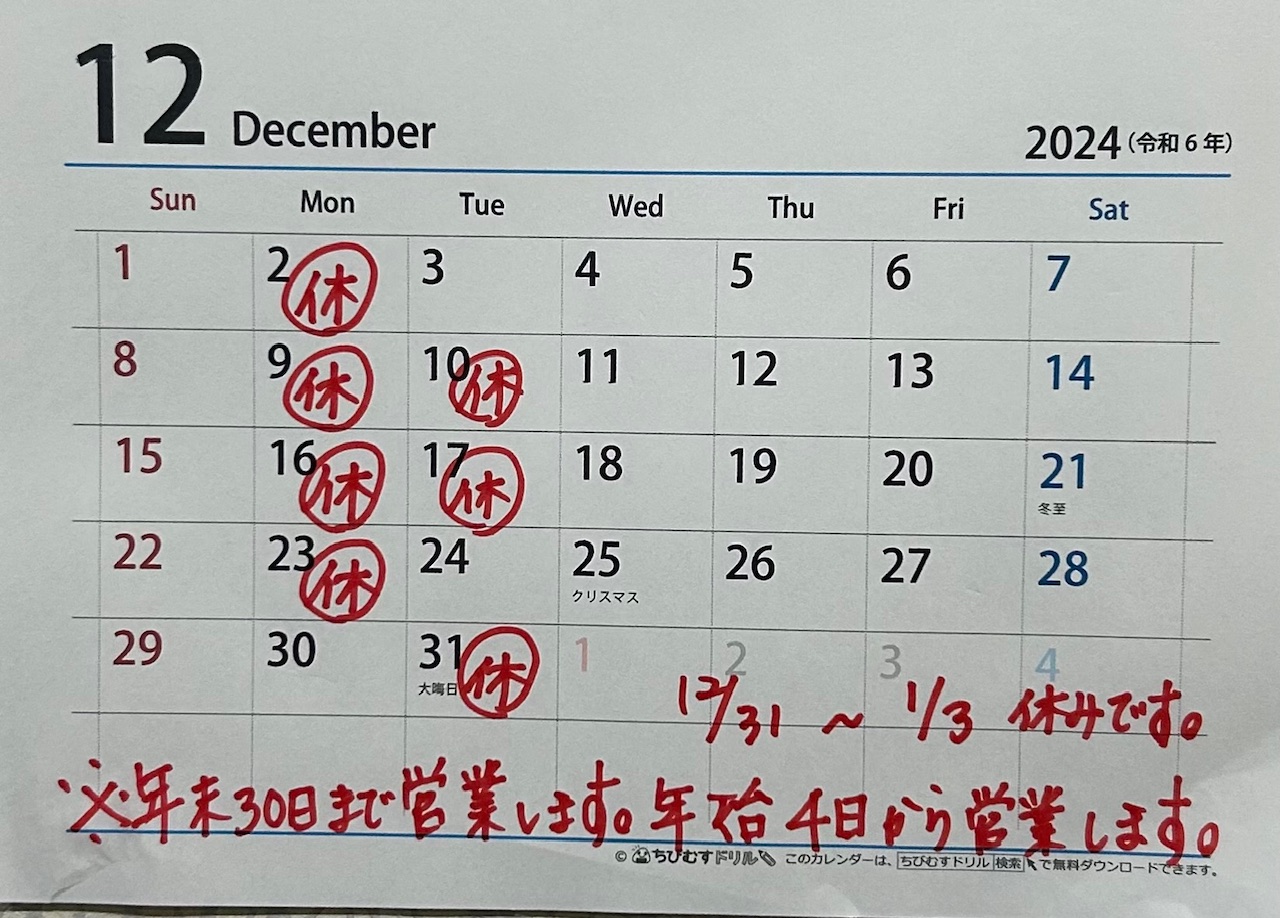 12 December 2024(令和6年)
Sun Mon Tue Wed Thu Fri Sat
1 2 休 3 4 5 6 7
8 9 休 10 休 11 12 13 14
15 16 休 17 休 18 19 20 21
冬至
22 23 休 24 25 26 27 28
クリスマス
29 30 31 休 1 2 3 4
大晦日
12/31 ~ 1/3 休みです。
※年末30日まで営業します。年始4日から営業します。
© ちびむすドリル このカレンダーは、ちびむすドリル 検索 で無料ダウンロードできます。